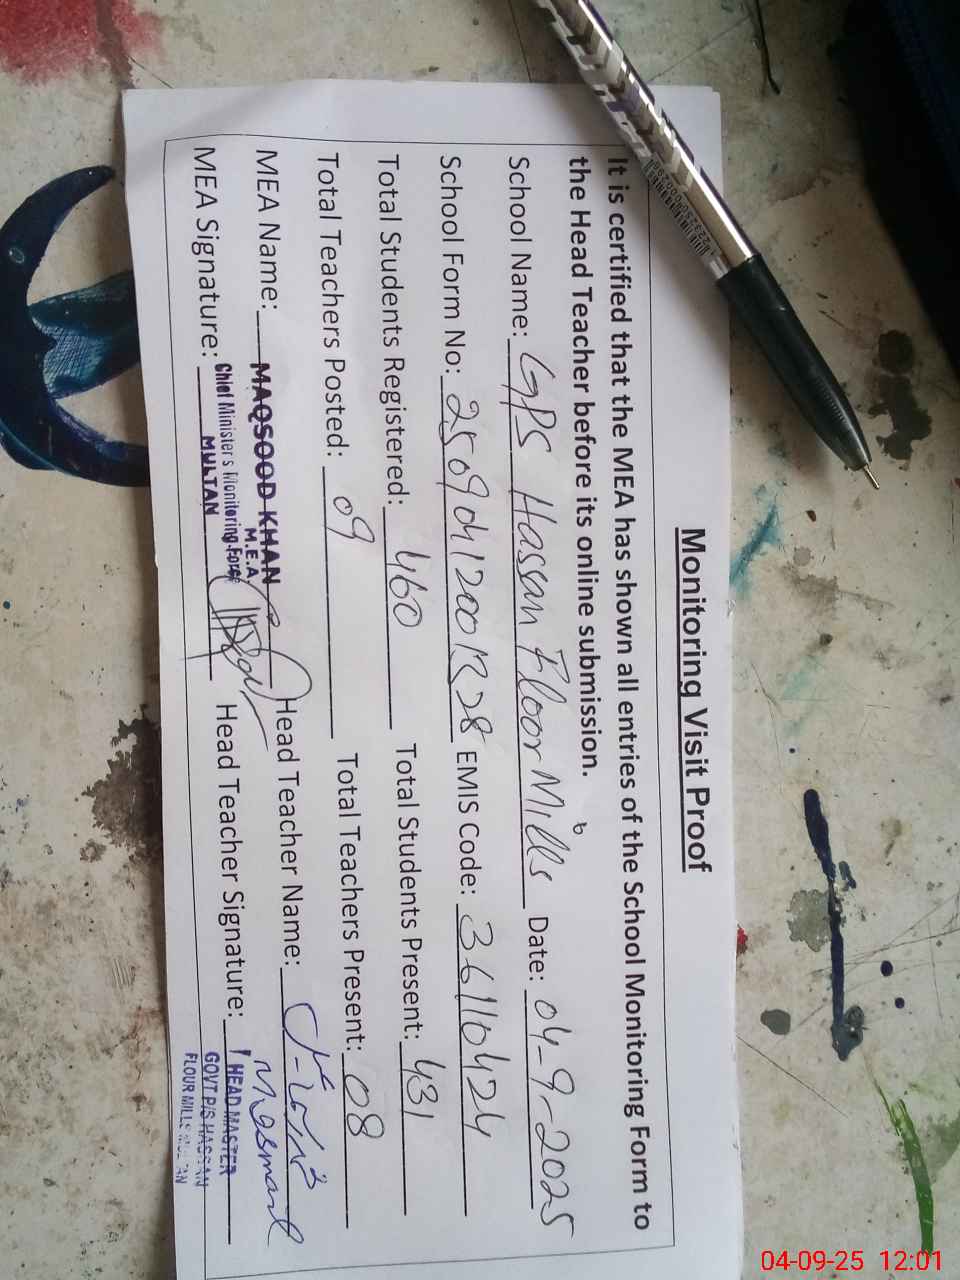 Monitoring Visit Proof
It is certified that the MEA has shown all entries of the School Monitoring Form to
the Head Teacher before its online submission.
School Name: GPS Hassan Floor Mills Date: 04-9-2025
School Form No: EMIS Code: 36110424
Total Students Registered: 460 Total Students Present: 431
Total Teachers Posted: 09 Total Teachers Present: 08
MEA Name: MAQSOOD KHAN Head Teacher Name:
M.E.A
MEA Signature: Chief Minister's Monitoring Force Head Teacher Signature:
MULTAN
HEAD MASTER
GOVT P/S HASSAN
FLOUR MILLS MULTAN
04-09-25 12:01